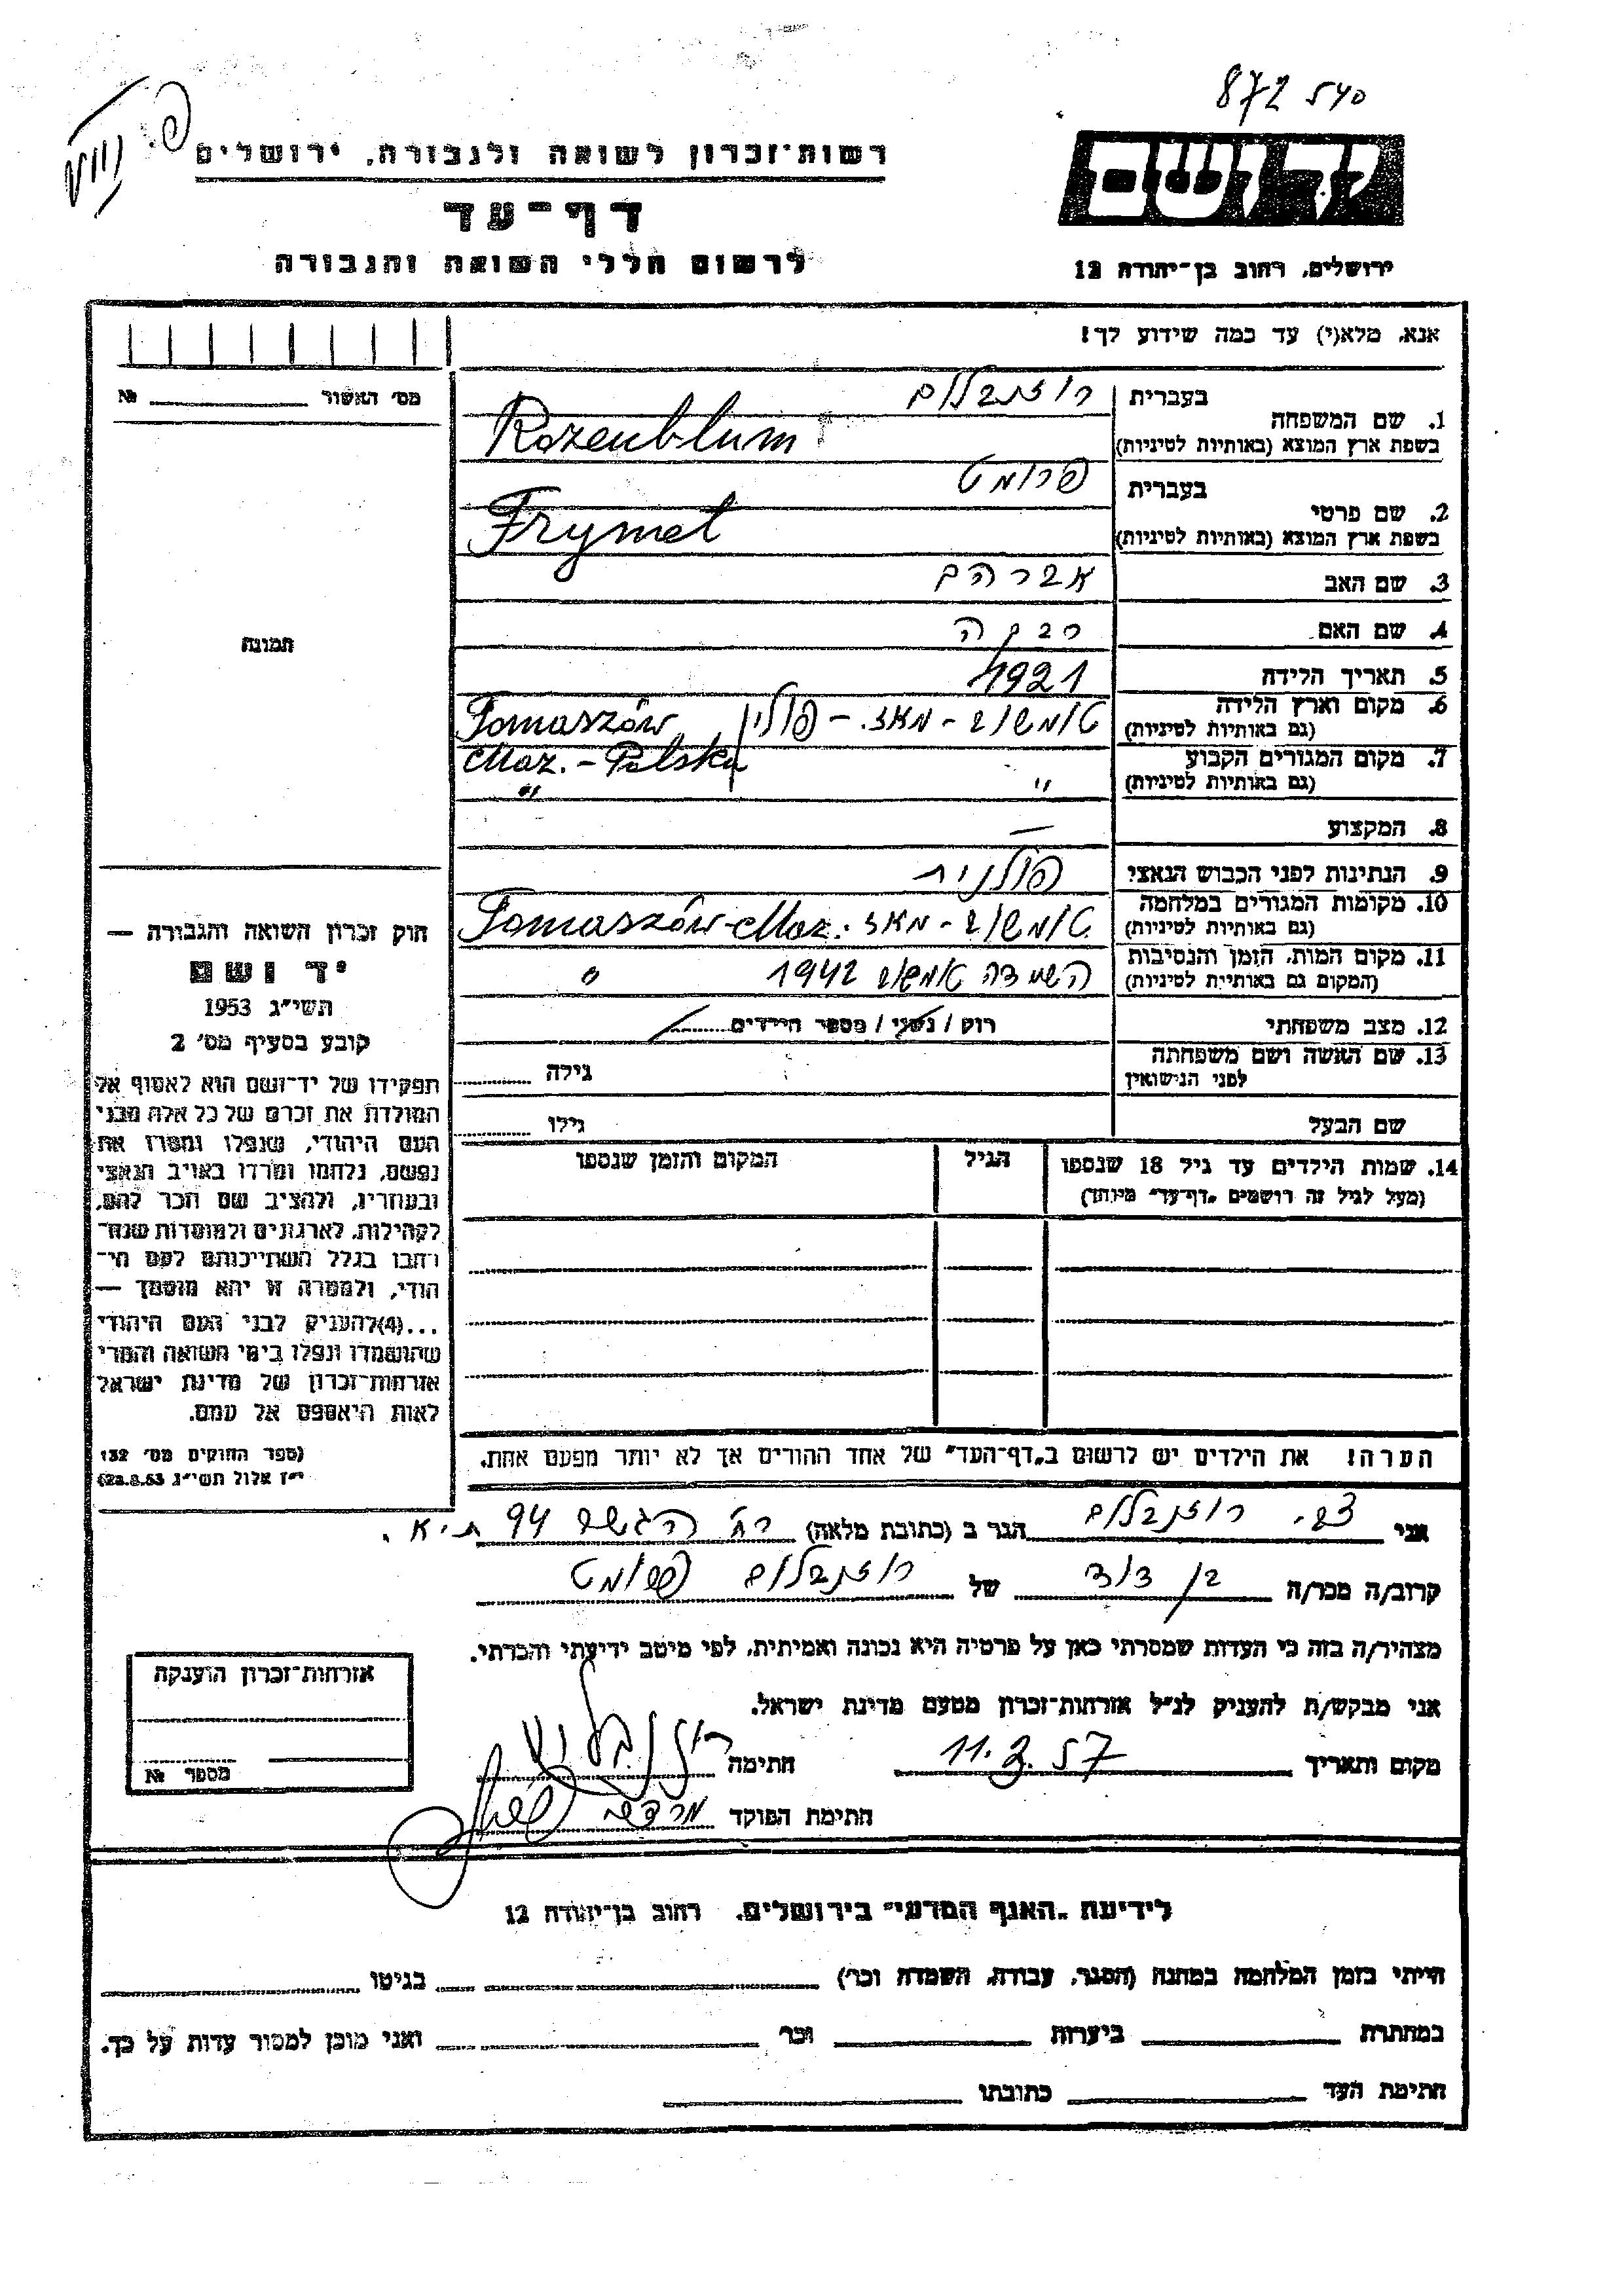 872 540
רשות־זכרון לשואה ולגבורה, ירושלים
יד ושם
דף־עד
לרשום חללי השואה והגבורה
ירושלים, רחוב בן־יהודה 12
אנא, מלא(י) עד כמה שידוע לך!
מס׳ האשור № 
בעברית רוזנבלום
1. שם המשפחה
בשפת ארץ המוצא (באותיות לטיניות) Rozenblum
בעברית פרומט
2. שם פרטי
בשפת ארץ המוצא (באותיות לטיניות) Frymet
3. שם האב אברהם
4. שם האם רבקה
תמונה
5. תאריך הלידה 1921
6. מקום וארץ הלידה טומשוב - מאז. - פולין Tomaszów
(גם באותיות לטיניות)
7. מקום המגורים הקבוע Maz. - Polska
(גם באותיות לטיניות) " "
8. המקצוע —
9. הנתינות לפני הכבוש הנאצי פולנית
10. מקומות המגורים במלחמה טומשוב - מאז. Tomaszów-Maz.
(גם באותיות לטיניות)
11. מקום המות, הזמן והנסיבות השמדה טומשוב 1942 "
(המקום גם באותיות לטיניות)
12. מצב משפחתי רוק / נשוי / מספר הילדים
13. שם האשה ושם משפחתה
לפני הנישואין גילה
שם הבעל גילו
14. שמות הילדים עד גיל 18 שנספו הגיל המקום והזמן שנספו
(מעל לגיל זה רושמים „דף־עד" מיוחד)
חוק זכרון השואה והגבורה —
יד ושם
תשי״ג 1953
קובע בסעיף מס׳ 2
תפקידו של יד־ושם הוא לאסוף אל
המולדת את זכרם של כל אלה מבני
העם היהודי, שנפלו ומסרו את
נפשם, נלחמו ומרדו באויב הנאצי
ובעוזריו, ולהציב שם וזכר להם,
לקהילות, לארגונים ולמוסדות שנח־
רבו בגלל השתייכותם לעם הי־
הודי, ולמטרה זו יהא מוסמך —
...(4) להעניק לבני העם היהודי
שהושמדו ונפלו בימי השואה והמרי
אזרחות־זכרון של מדינת ישראל
לאות היאספם אל עמם.
(ספר החוקים מס׳ 132
י״ז אלול תשי״ג 28.8.53)
הערה! את הילדים יש לרשום ב„דף־העד" של אחד ההורים אך לא יותר מפעם אחת.
אני צבי רוזנבלום הגר ב (כתובת מלאה) רח׳ 94 ת״א.
קרוב/ה מכר/ה בן דוד של רוזנבלום פרומט
מצהיר/ה בזה כי העדות שמסרתי כאן על פרטיה היא נכונה ואמיתית, לפי מיטב ידיעתי והכרתי.
אני מבקש/ת להעניק לנ״ל אזרחות־זכרון מטעם מדינת ישראל.
מקום ותאריך 11.3.57 חתימה רוזנבלום
חתימת הפוקד מרדכי
אזרחות־זכרון הוענקה
מספר №
לידיעת „האגף המדעי" בירושלים, רחוב בן־יהודה 12
הייתי בזמן המלחמה במחנה (הסגר, עבודה, השמדה וכו׳) בגיטו
במחתרת ביערות וכו׳ ואני מוכן למסור עדות על כך.
חתימת העד כתובתו